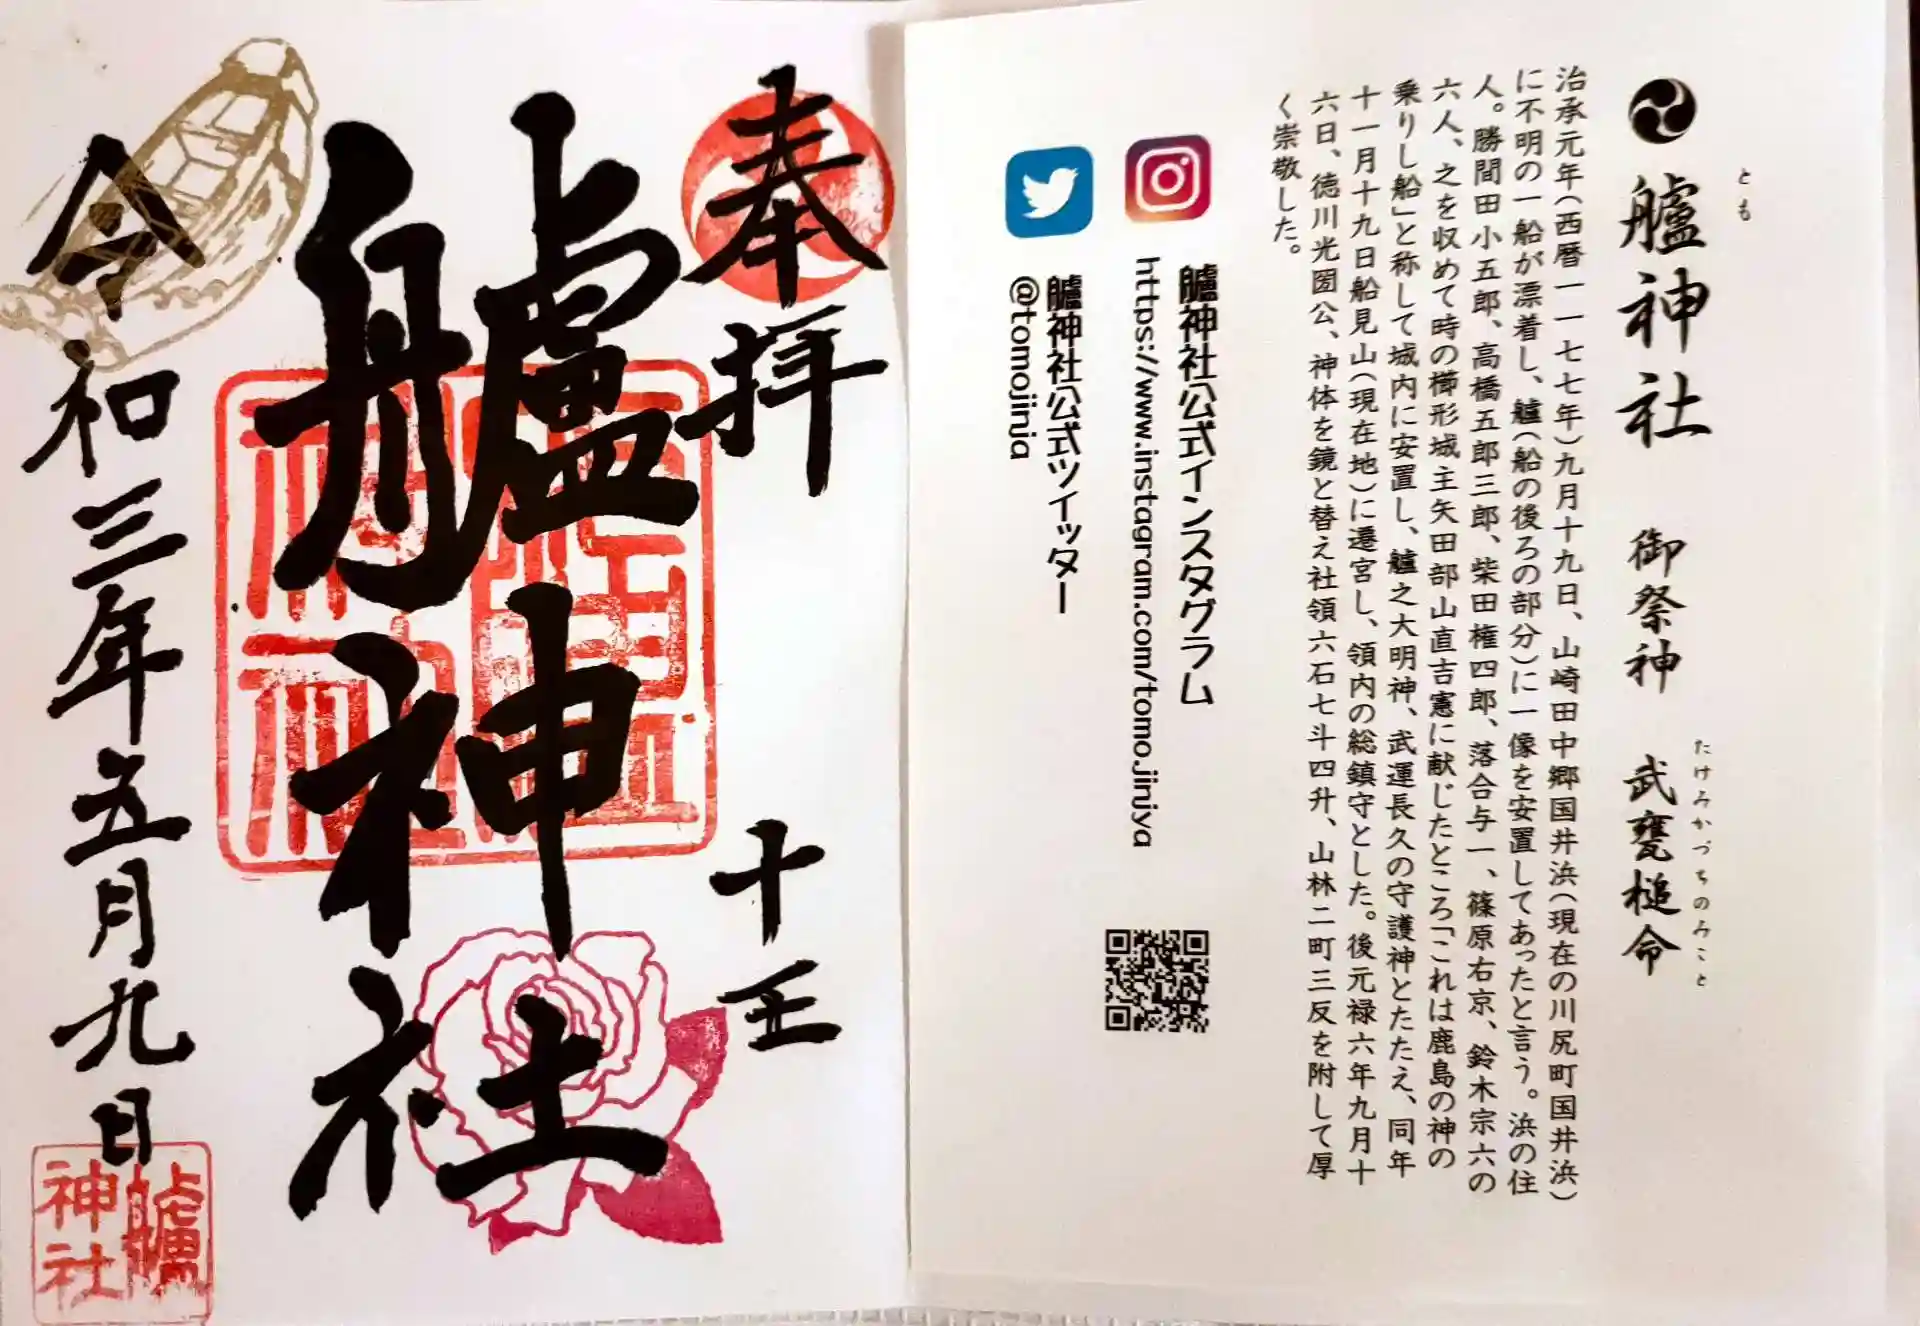 艫神社　御祭神　武甕槌命
とも
たけみかづちのみこと
治承元年(西暦一一七七年)九月十九日、山崎田中郷国井浜(現在の川尻町国井浜)
に不明の一船が漂着し、艫(船の後ろの部分)に一像を安置してあったと言う。浜の住
人。勝間田小五郎、高橋五郎三郎、柴田権四郎、落合与一、篠原右京、鈴木宗六の
六人、之を収めて時の櫛形城主矢田部山直吉憲に献じたところ「これは鹿島の神の
乗りし船」と称して城内に安置し、艫之大明神、武運長久の守護神とたたえ、同年
十一月十九日船見山(現在地)に遷宮し、領内の総鎮守とした。後元禄六年九月十
六日、徳川光圀公、神体を鏡と替え社領六石七斗四升、山林二町三反を附して厚
く崇敬した。
艫神社公式インスタグラム
https://www.instagram.com/tomo.jinjya
艫神社公式ツイッター
@tomojinja
奉拝
十王
艫神社
令和三年五月九日
艫
神社